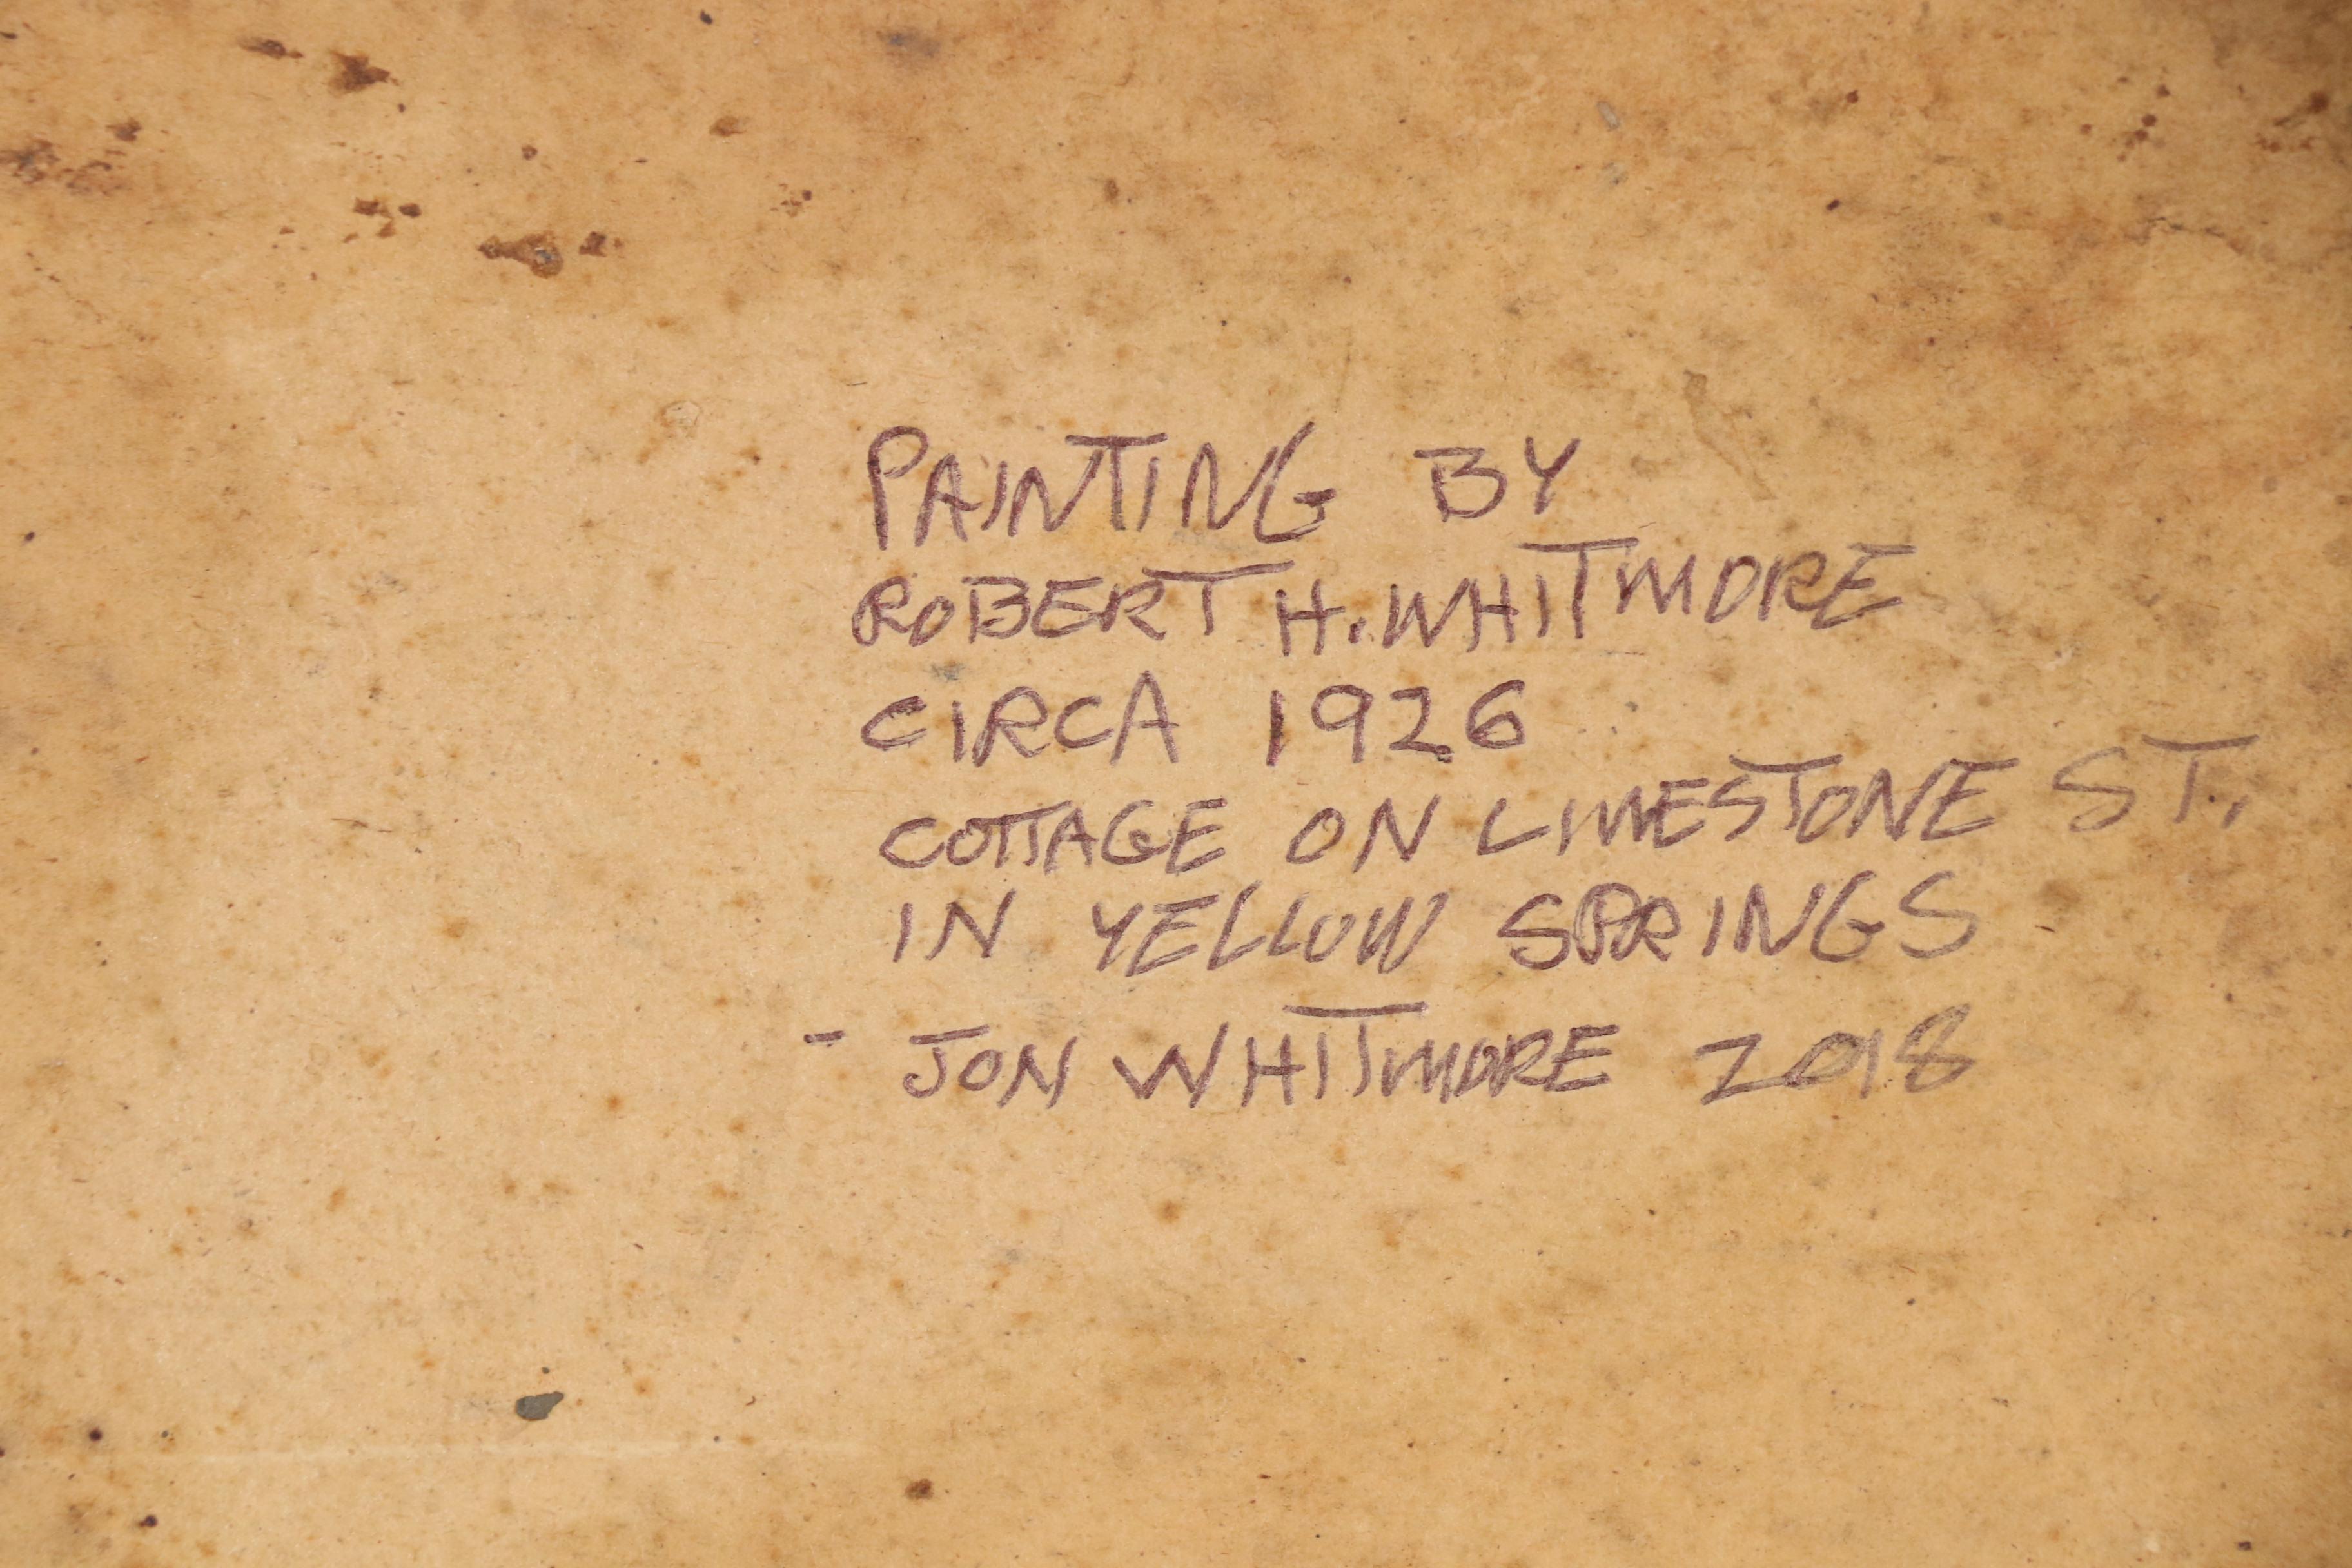 PAINTING BY
ROBERT H. WHITMORE
CIRCA 1926
COTTAGE ON LIMESTONE ST.
IN YELLOW SPRINGS
- JON WHITMORE 2018